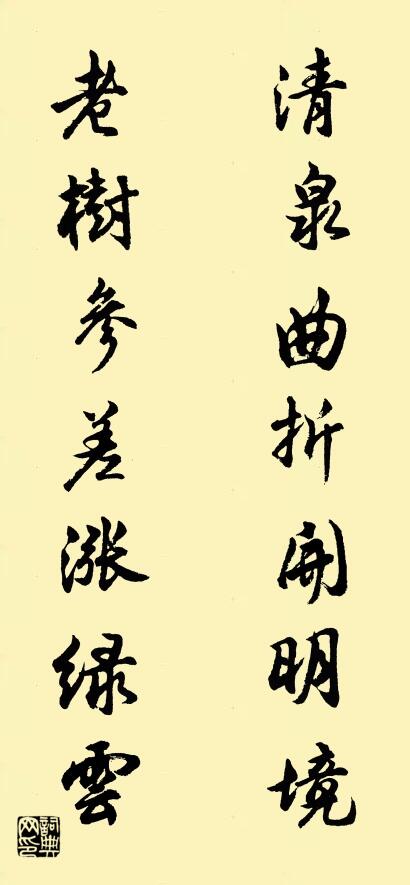 清泉曲折開明境
老樹參差漲綠雲
詞典网印